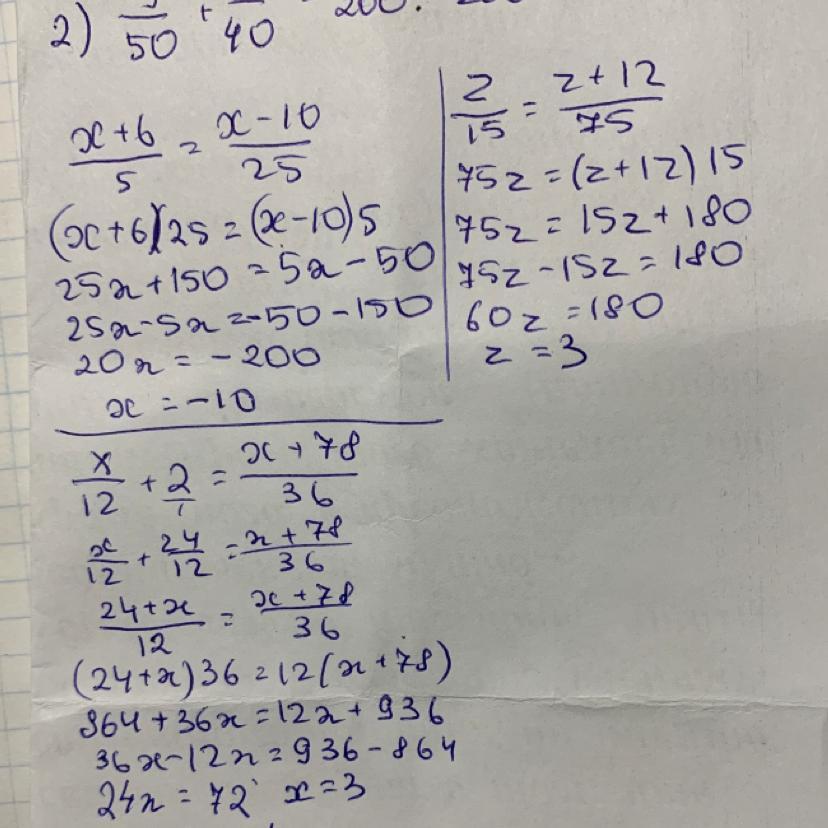 2) /50 + /40
(x+6)/5 = (x-10)/25
(x+6)25=(x-10)5
25x+150=5x-50
25x-5x=-50-150
20x=-200
x=-10
z/15 = (z+12)/75
75z=(z+12)15
75z=15z+180
75z-15z=180
60z=180
z=3
x/12 + 2/1 = (x+78)/36
x/12 + 24/12 = (x+78)/36
(24+x)/12 = (x+78)/36
(24+x)36=12(x+78)
864+36x=12x+936
36x-12x=936-864
24x=72 x=3